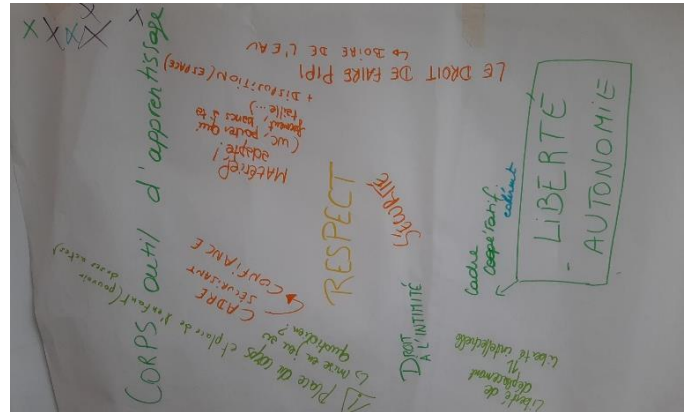 CORPS outil d'apprentissage
LE DROIT DE FAIRE PIPI
↳ BOIRE DE L'EAU
MATÉRIEL
adapté !
(WC, portes qui
ferment, bancs à ta
taille...)
+ DISPOSITION (ESPACE)
CADRE
SÉCURISANT
CONFIANCE
RESPECT
SÉCURITÉ
DROIT
À L'INTIMITÉ
1) Place du corps et place de l'enfant (pouvoir
↳ mise en jeu au
quotidien ?
Cadre
coopératif
cohérent
- LIBERTÉ
AUTONOMIE
Liberté de
déplacement
Liberté intellectuelle